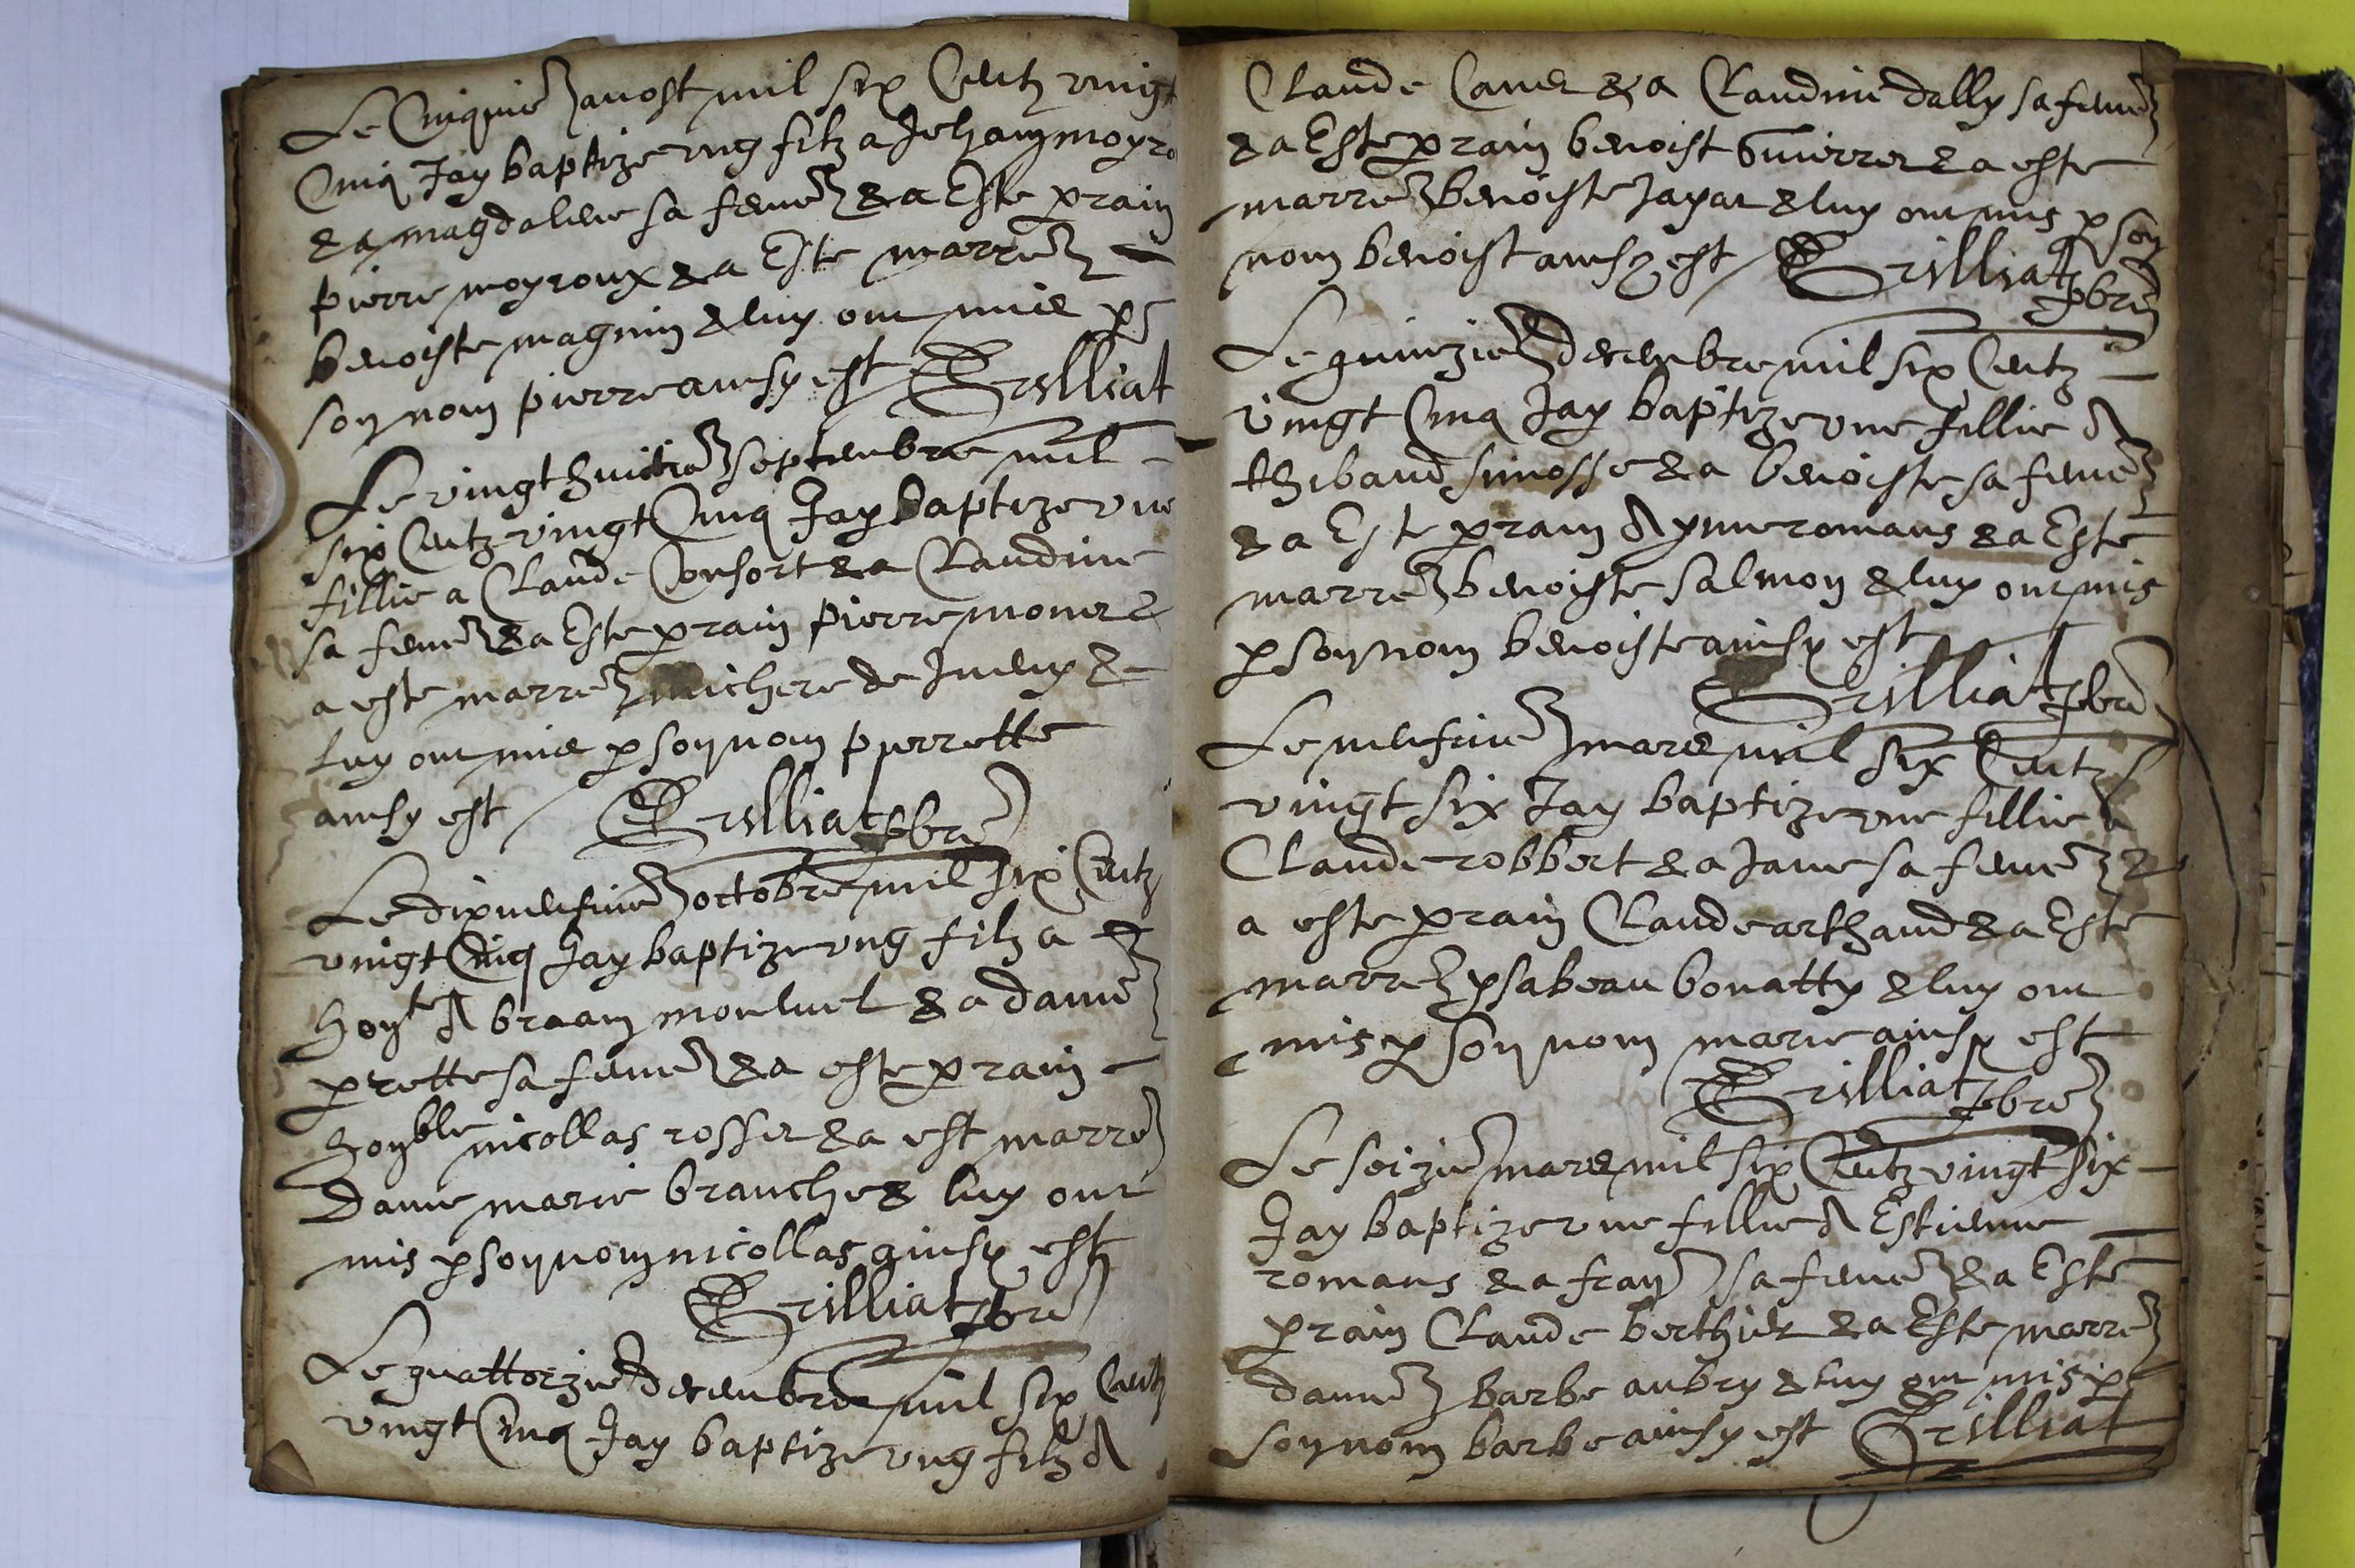 Le Cinquie aoust mil six Centz vingt
Cinq Jay baptize ung filz a Jehan moyro
& a magdalene sa feme & a Este prain
pierre moyroux & a Este marre
benoiste magnin & luy ont mis p
son nom pierre ainsy est Trilliat
Le vingt huictie septembre mil
six Centz vingt Cinq Jay baptize une
fillie a Claude Consort & a Claudine
sa feme & a Este prain pierre monet &
a este marre michere de &
luy ont mis p son nom pierrette
ainsy est Trilliat pbre
Le dix neufvie octobre mil six Centz
vingt Cinq Jay baptize ung filz a
hon^te Abraam monluel & a dame
prette sa feme & a este prain
honble nicollas rosset & a est marre
Dame marie branche & luy ont
mis p son nom nicollas ainsy est
Trilliat pbre
Le quattorzie decembre mil six Centz
vingt Cinq Jay baptize ung filz A
Claude Canet & a Claudine dally sa feme
& a Este prain benoist & a este
marre benoiste Jayat & luy ont mis p son
nom benoist ainsy est Trilliat pbre
Le quinzie decembre mil six Centz
vingt Cinq Jay baptize une fillie A
thibaud simosse & a benoiste sa feme
& a Este prain Ayme romans & a Este
marre benoiste salmon & luy ont mis
p son nom benoiste ainsy est
Trilliat pbre
Le neufvie mars mil six Centz
vingt six Jay baptize une fillie a
Claude robbert & a Jane sa feme &
a este prain Claude arthaud & a Este
marre ysabeau bonatty & luy ont
mis p son nom marie ainsy est
Trilliat pbre
Le seizie mars mil six Centz vingt six
Jay baptize une fillie A Estienne
romans & a fran sa feme & a Este
prain Claude berthier & a Este marre
dame barbe aubry & luy ont mis p
son nom barbe ainsy est Trilliat